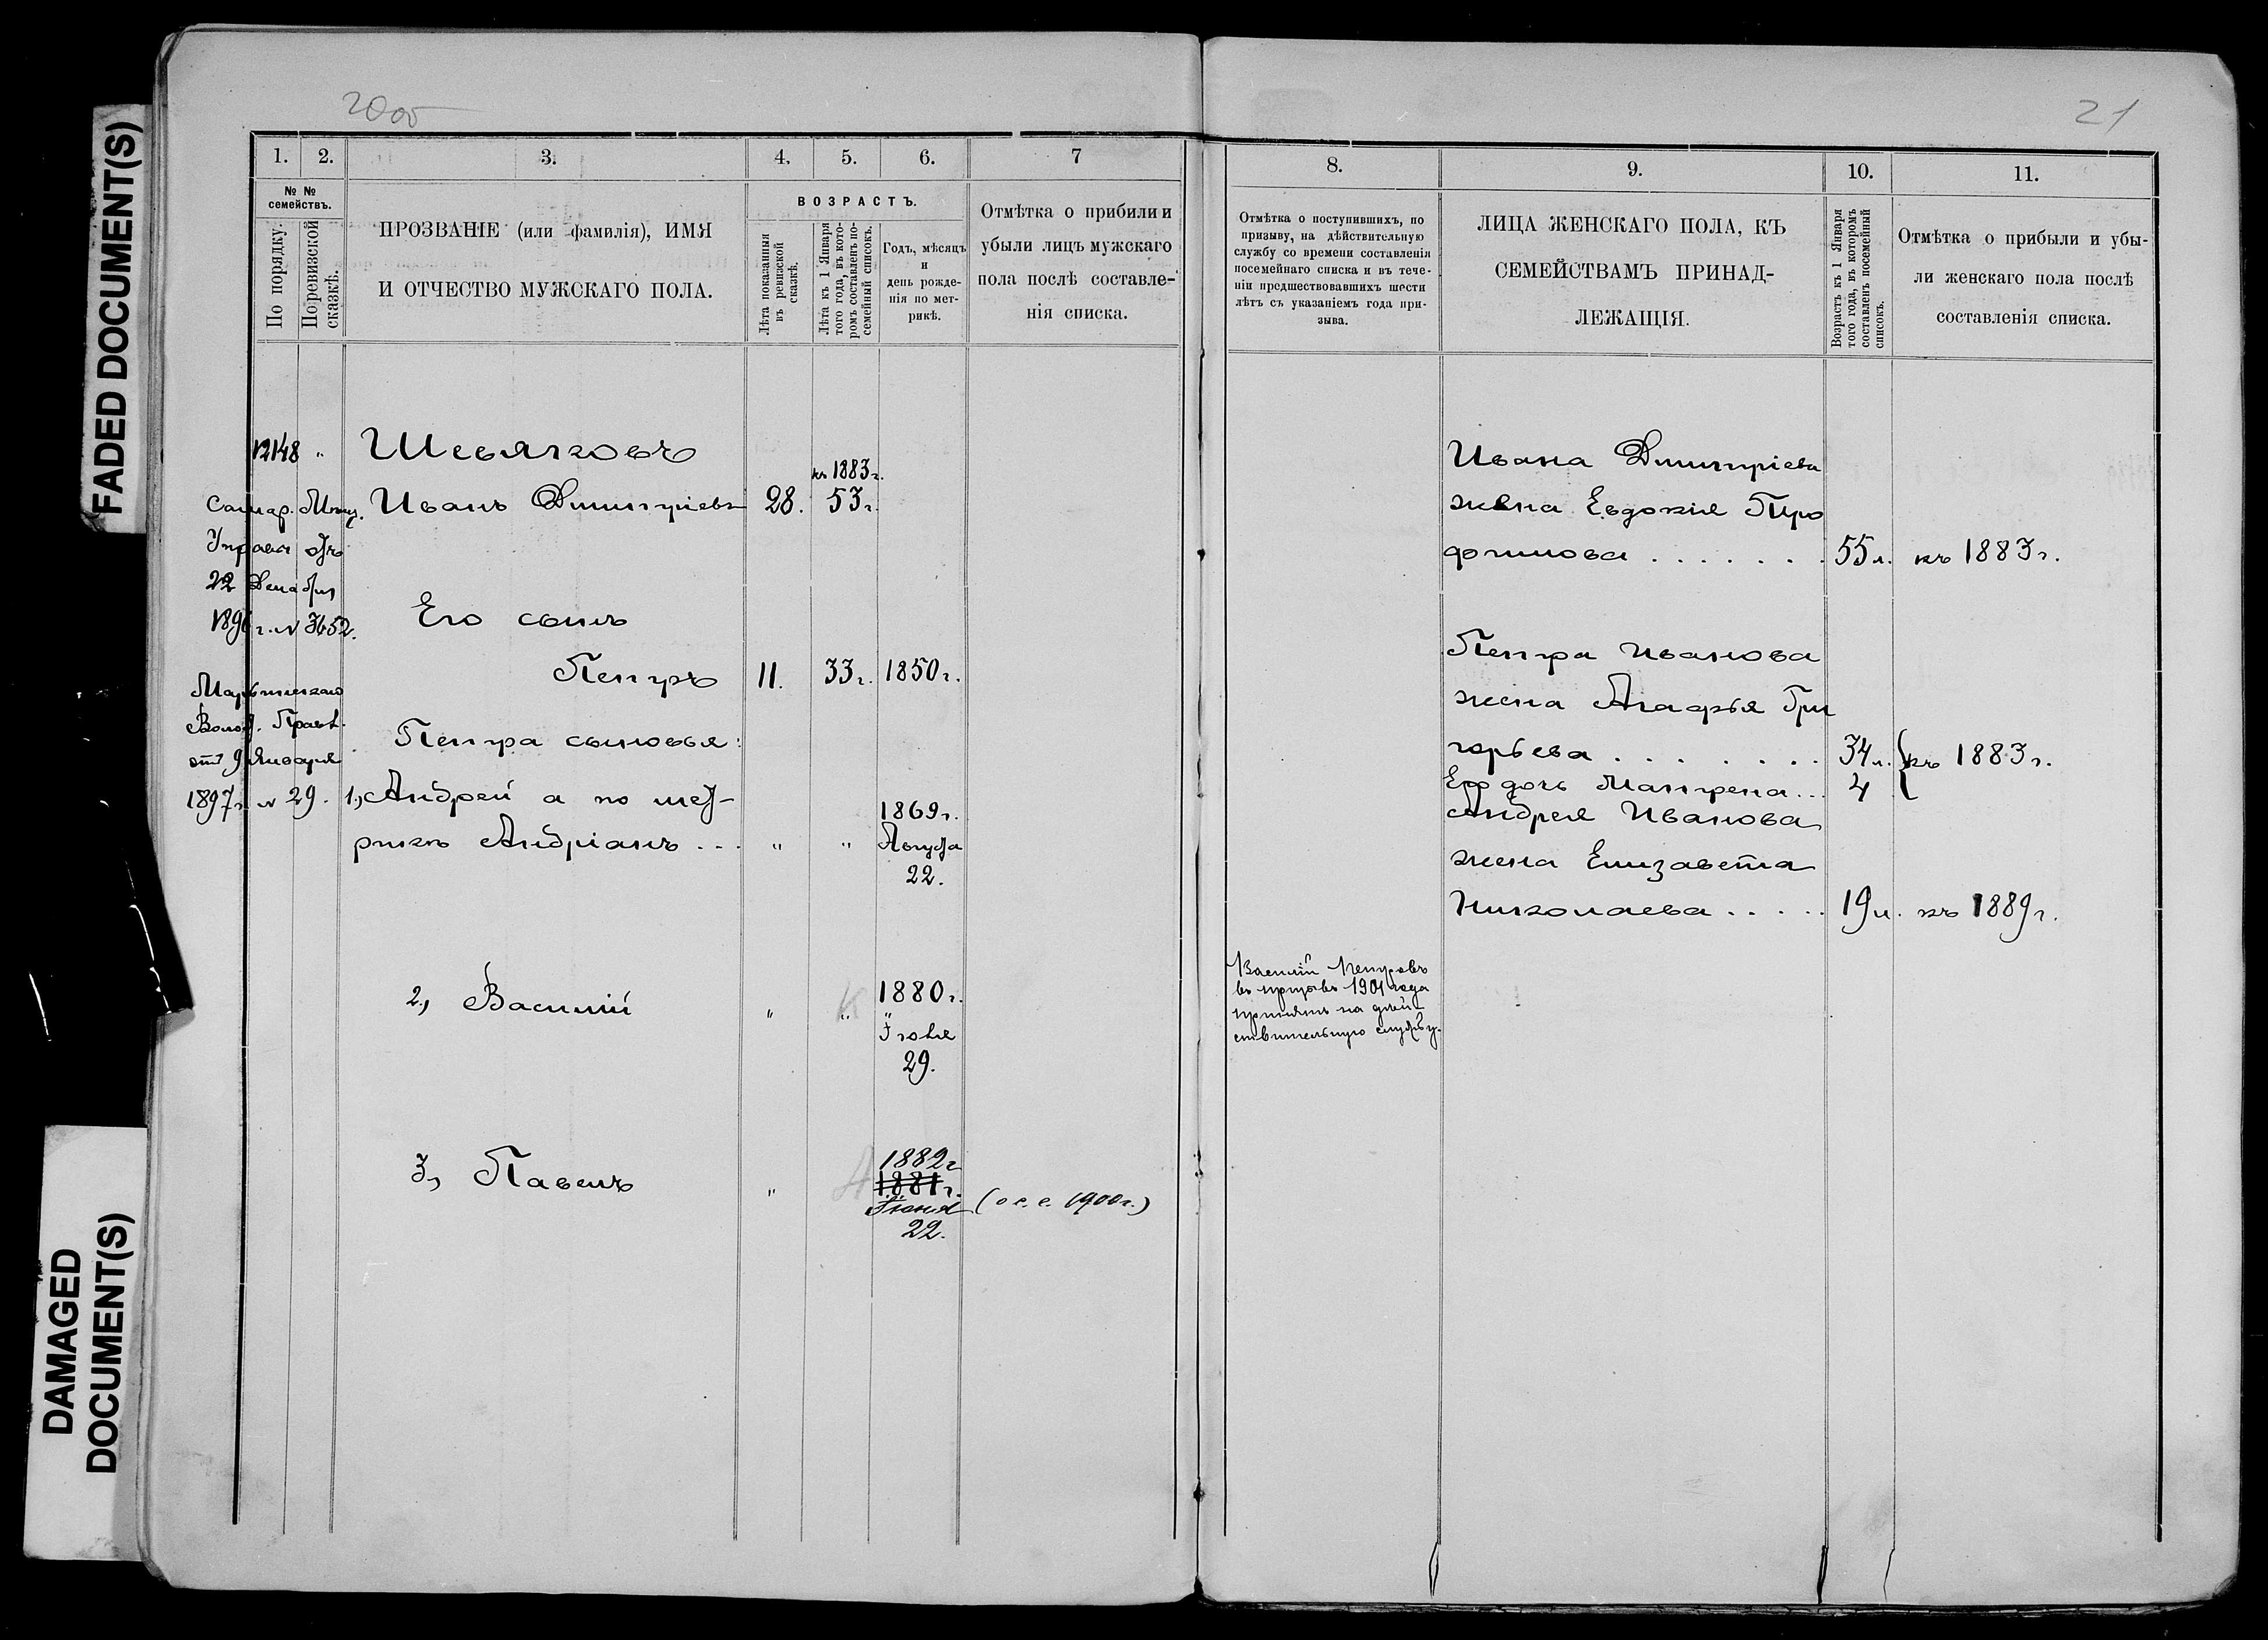 FADED DOCUMENT(S)
DAMAGED
DOCUMENT(S)
20об
1. 2. 3. 4. 5. 6. 7
№ №
семействъ.
По порядку.
По ревизской
сказкѣ.
ПРОЗВАНІЕ (или фамилія), ИМЯ
И ОТЧЕСТВО МУЖСКАГО ПОЛА.
ВОЗРАСТЪ.
Лѣта показанныя
въ ревизской
сказкѣ.
Лѣта къ 1 Января
того года, въ кото-
ромъ составленъ по-
семейный списокъ.
Годъ, мѣсяцъ
и
день рожде-
нія по мет-
рикѣ.
Отмѣтка о прибыли и
убыли лицъ мужскаго
пола послѣ составле-
нія списка.
12148 "
Самар. Мѣщ.
Управы отъ
22 Декабря
1896 г. № 3652.
Марьинскаго
Волос. Правл.
отъ 9 Января
1897 г. № 29.
Шевяковъ
Иванъ Дмитріевъ 28. къ 1883 г. 53 г.
Его сынъ
Петръ 11. 33 г. 1850 г.
Петра сыновья:
1, Андрей а по мет-
рикѣ Андріанъ ... " " 1869 г.
Августа
22.
2, Василий " " 1880 г.
Іюля
29.
3, Павелъ " 1882 г
1881 г.
Іюня
22.
(о с. с. 1900 г.)
21
8. 9. 10. 11.
Отмѣтка о поступившихъ, по
призыву, на дѣйствительную
службу со времени составленія
посемейнаго списка и въ тече-
ніи предшествовавшихъ шести
лѣтъ съ указаніемъ года при-
зыва.
ЛИЦА ЖЕНСКАГО ПОЛА, КЪ
СЕМЕЙСТВАМЪ ПРИНАД-
ЛЕЖАЩІЯ.
Возрастъ къ 1 Января
того года, въ которомъ
составленъ посемейный
списокъ.
Отмѣтка о прибыли и убы-
ли женскаго пола послѣ
составленія списка.
Ивана Дмитріева
жена Евдокія Про
фимова . . . . . . . 55 л. къ 1883 г.
Петра Иванова
жена Агафья Гри
горьева . . . . . . . 34 л. къ 1883 г.
Его дочь Матрена... 4
Андрея Иванова
жена Елизавета
Николаева . . . . . 19 л. къ 1889 г.
Василій Петровъ
въ призывъ 1901 года
принятъ на дѣй-
ствительную службу.